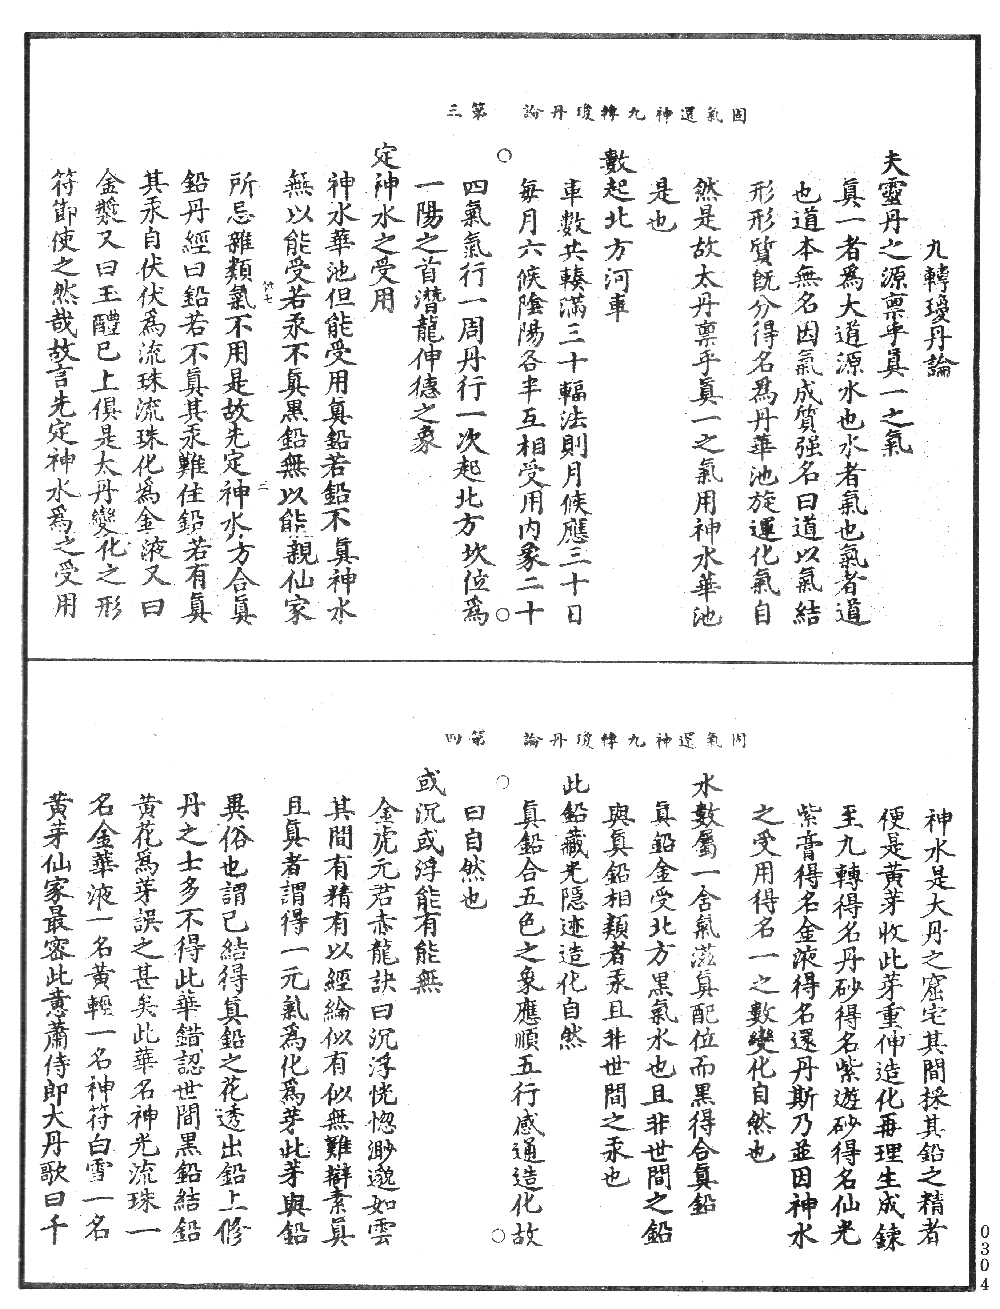 固氣還神九轉瓊丹論　第三
九轉瓊丹論
夫靈丹之源禀乎眞一之氣
眞一者爲大道源水也水者氣也氣者道
也道本無名因氣成質强名曰道以氣結
形形質旣分得名爲丹華池旋運化氣自
然是故太丹禀乎眞一之氣用神水華池
是也
數起北方河車
車數共輳滿三十輻法則月候應三十日
每月六候陰陽各半互相受用内象二十
四氣氣行一周丹行一次起北方坎位爲
一陽之首潛龍伸德之象
定神水之受用
神水華池但能受用眞鉛若鉛不眞神水
無以能受若汞不眞黑鉛無以能親仙家
所忌雜類氣不用是故先定神水方合眞
鉛丹經曰鉛若不眞其汞難住鉛若有眞
其汞自伏伏爲流珠流珠化爲金液又曰
金漿又曰玉醴已上俱是太丹變化之形
符節使之然哉故言先定神水爲之受用
三
固氣還神九轉瓊丹論　第四
神水是大丹之窟宅其間採其鉛之精者
便是黄芽收此芽重伸造化再理生成鍊
至九轉得名丹砂得名紫遊砂得名仙光
紫膏得名金液得名還丹斯乃並因神水
之受用得名一之數變化自然也
水數屬一含氣滋眞配位而黑得合眞鉛
眞鉛金受北方黑氣水也且非世間之鉛
與眞鉛相類者汞且非世間之汞也
此鉛藏光隱迹造化自然
眞鉛合五色之象應順五行感通造化故
曰自然也
或沉或浮能有能無
金虎元君赤龍訣曰沉浮恍惚渺邈如雲
其間有精有以經綸似有似無難辯素眞
且眞者謂得一元氣爲化爲芽此芽與鉛
異俗也謂已結得眞鉛之花透出鉛上修
丹之士多不得此華錯認世間黑鉛結鉛
黄花爲芽誤之甚矣此華名神光流珠一
名金華液一名黄輕一名神符白雪一名
黄芽仙家最密此意蕭侍郎大丹歌曰千
0304